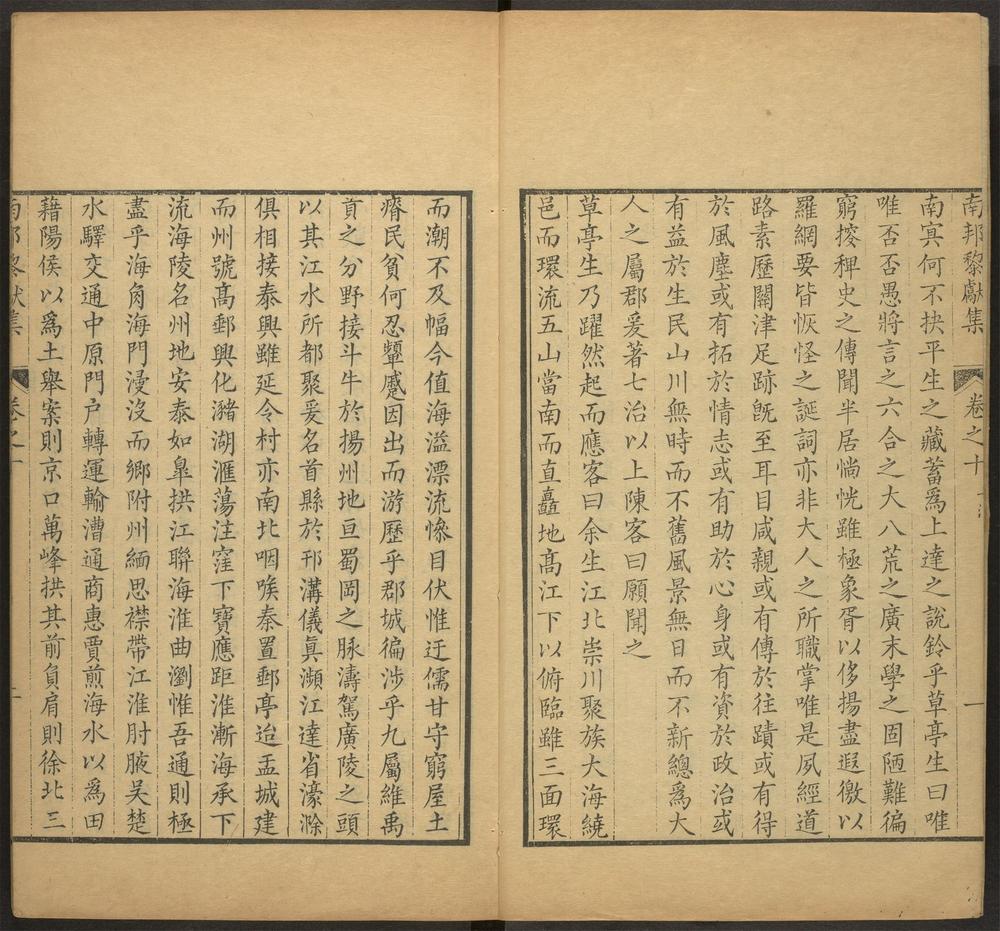 南邦黎獻集 卷之十 一
南冥何不抉平生之藏蓄爲上達之說鈴乎草亭生曰唯
唯否否愚將言之六合之大八荒之廣末學之固陋難徧
窮搜稗史之傳聞半居惝恍雖極象胥以侈揚盡遐儌以
羅網要皆恢怪之誕詞亦非大人之所職掌唯是夙經道
路素歷關津足跡既至耳目咸親或有傳於往蹟或有得
於風塵或有拓於情志或有助於心身或有資於政治或
有益於生民山川無時而不舊風景無日而不新總爲大
人之屬郡爰著七治以上陳客曰願聞之
草亭生乃躍然起而應客曰余生江北崇川聚族大海繞
邑而環流五山當南而直矗地高江下以俯臨雖三面環
而潮不及幅今值海溢漂流慘目伏惟迂儒甘守窮屋土
瘠民貧何忍顰蹙因出而游歷乎郡城徧涉乎九屬維禹
貢之分野接斗牛於揚州地亘蜀岡之脉濤駕廣陵之頭
以其江水所都聚爰名首縣於邗溝儀真瀕江達省濠滁
俱相接泰興雖延令村亦南北咽喉秦置郵亭迨盂城建
而州號高郵興化瀦湖滙蕩注窪下寶應距淮漸海承下
流海陵名州地安泰如臯拱江聯海淮曲瀏惟吾通則極
盡乎海角海門漫沒而鄉附州緬思襟帶江淮肘腋吴楚
水驛交通中原門户轉運輸漕通商惠賈煎海水以爲田
藉陽侯以爲土舉案則京口萬峰拱其前負肩則徐北三
南邦黎獻集 卷之十 二